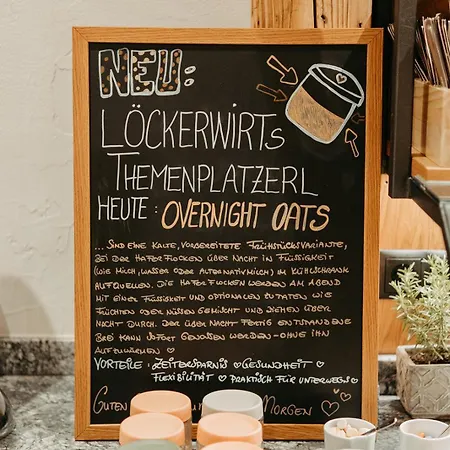 NEU:
LÖCKERWIRTS
THEMENPLATZERL
HEUTE: OVERNIGHT OATS
... SIND EINE KALTE, VORBEREITETE FRÜHSTÜCKSVARIANTE,
BEI DER HAFERFLOCKEN ÜBER NACHT IN FLÜSSIGKEIT
(WIE MILCH, WASSER ODER ALTERNATIVMILCH) IM KÜHLSCHRANK
AUFQUELLEN. DIE HAFERFLOCKEN WERDEN AM ABEND
MIT EINER FLÜSSIGKEIT UND OPTIONALEN ZUTATEN WIE
FRÜCHTEN ODER NÜSSEN GEMISCHT UND ZIEHEN ÜBER
NACHT DURCH. DER ÜBER NACHT FERTIG ENTSTANDENE
BREI KANN SOFORT GENOSSEN WERDEN - OHNE IHN
AUFZUWÄRMEN ♡
VORTEILE: ZEITERSPARNIS ♡ GESUNDHEIT ♡
FLEXIBILITÄT ♡ PRAKTISCH FÜR UNTERWEGS ♡
GUTEN MORGEN ♡♡